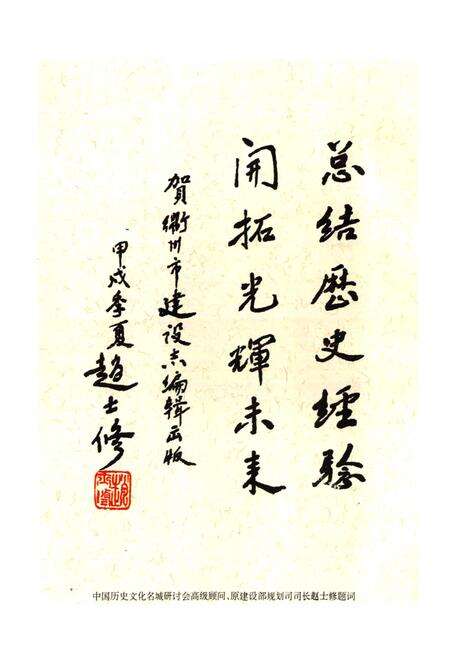 总结歷史經驗
開拓光輝未来
賀衢州市建设志编辑出版
甲戌季夏
趙士修
中国历史文化名城研讨会高级顾问、原建设部规划司司长赵士修题词